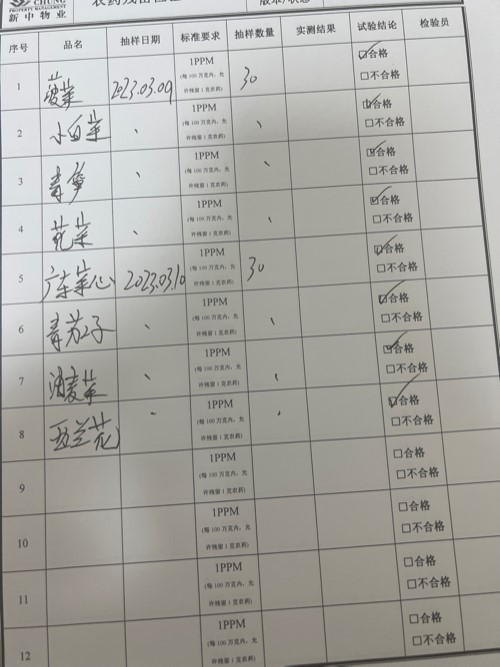 CHUNG
PROPERTY MANAGEMENT
新中物业
序号 品名 抽样日期 标准要求 抽样数量 实测结果 试验结论 检验员
1 菠菜 2023.03.09 1PPM (每100万克内，允许残留1克农药) 30 ☑合格 □不合格
2 小白菜 、 1PPM (每100万克内，允许残留1克农药) 、 ☑合格 □不合格
3 青笋 、 1PPM (每100万克内，允许残留1克农药) 、 ☑合格 □不合格
4 花菜 、 1PPM (每100万克内，允许残留1克农药) 、 ☑合格 □不合格
5 广东菜心 2023.03.10 1PPM (每100万克内，允许残留1克农药) 30 ☑合格 □不合格
6 青苏子 、 1PPM (每100万克内，允许残留1克农药) 、 ☑合格 □不合格
7 油麦菜 、 1PPM (每100万克内，允许残留1克农药) 、 ☑合格 □不合格
8 西兰花 、 1PPM (每100万克内，允许残留1克农药) 、 ☑合格 □不合格
9 1PPM (每100万克内，允许残留1克农药) □合格 □不合格
10 1PPM (每100万克内，允许残留1克农药) □合格 □不合格
11 1PPM (每100万克内，允许残留1克农药) □合格 □不合格
12 1PPM (每100万克内，允许残留1克农药) □合格 □不合格